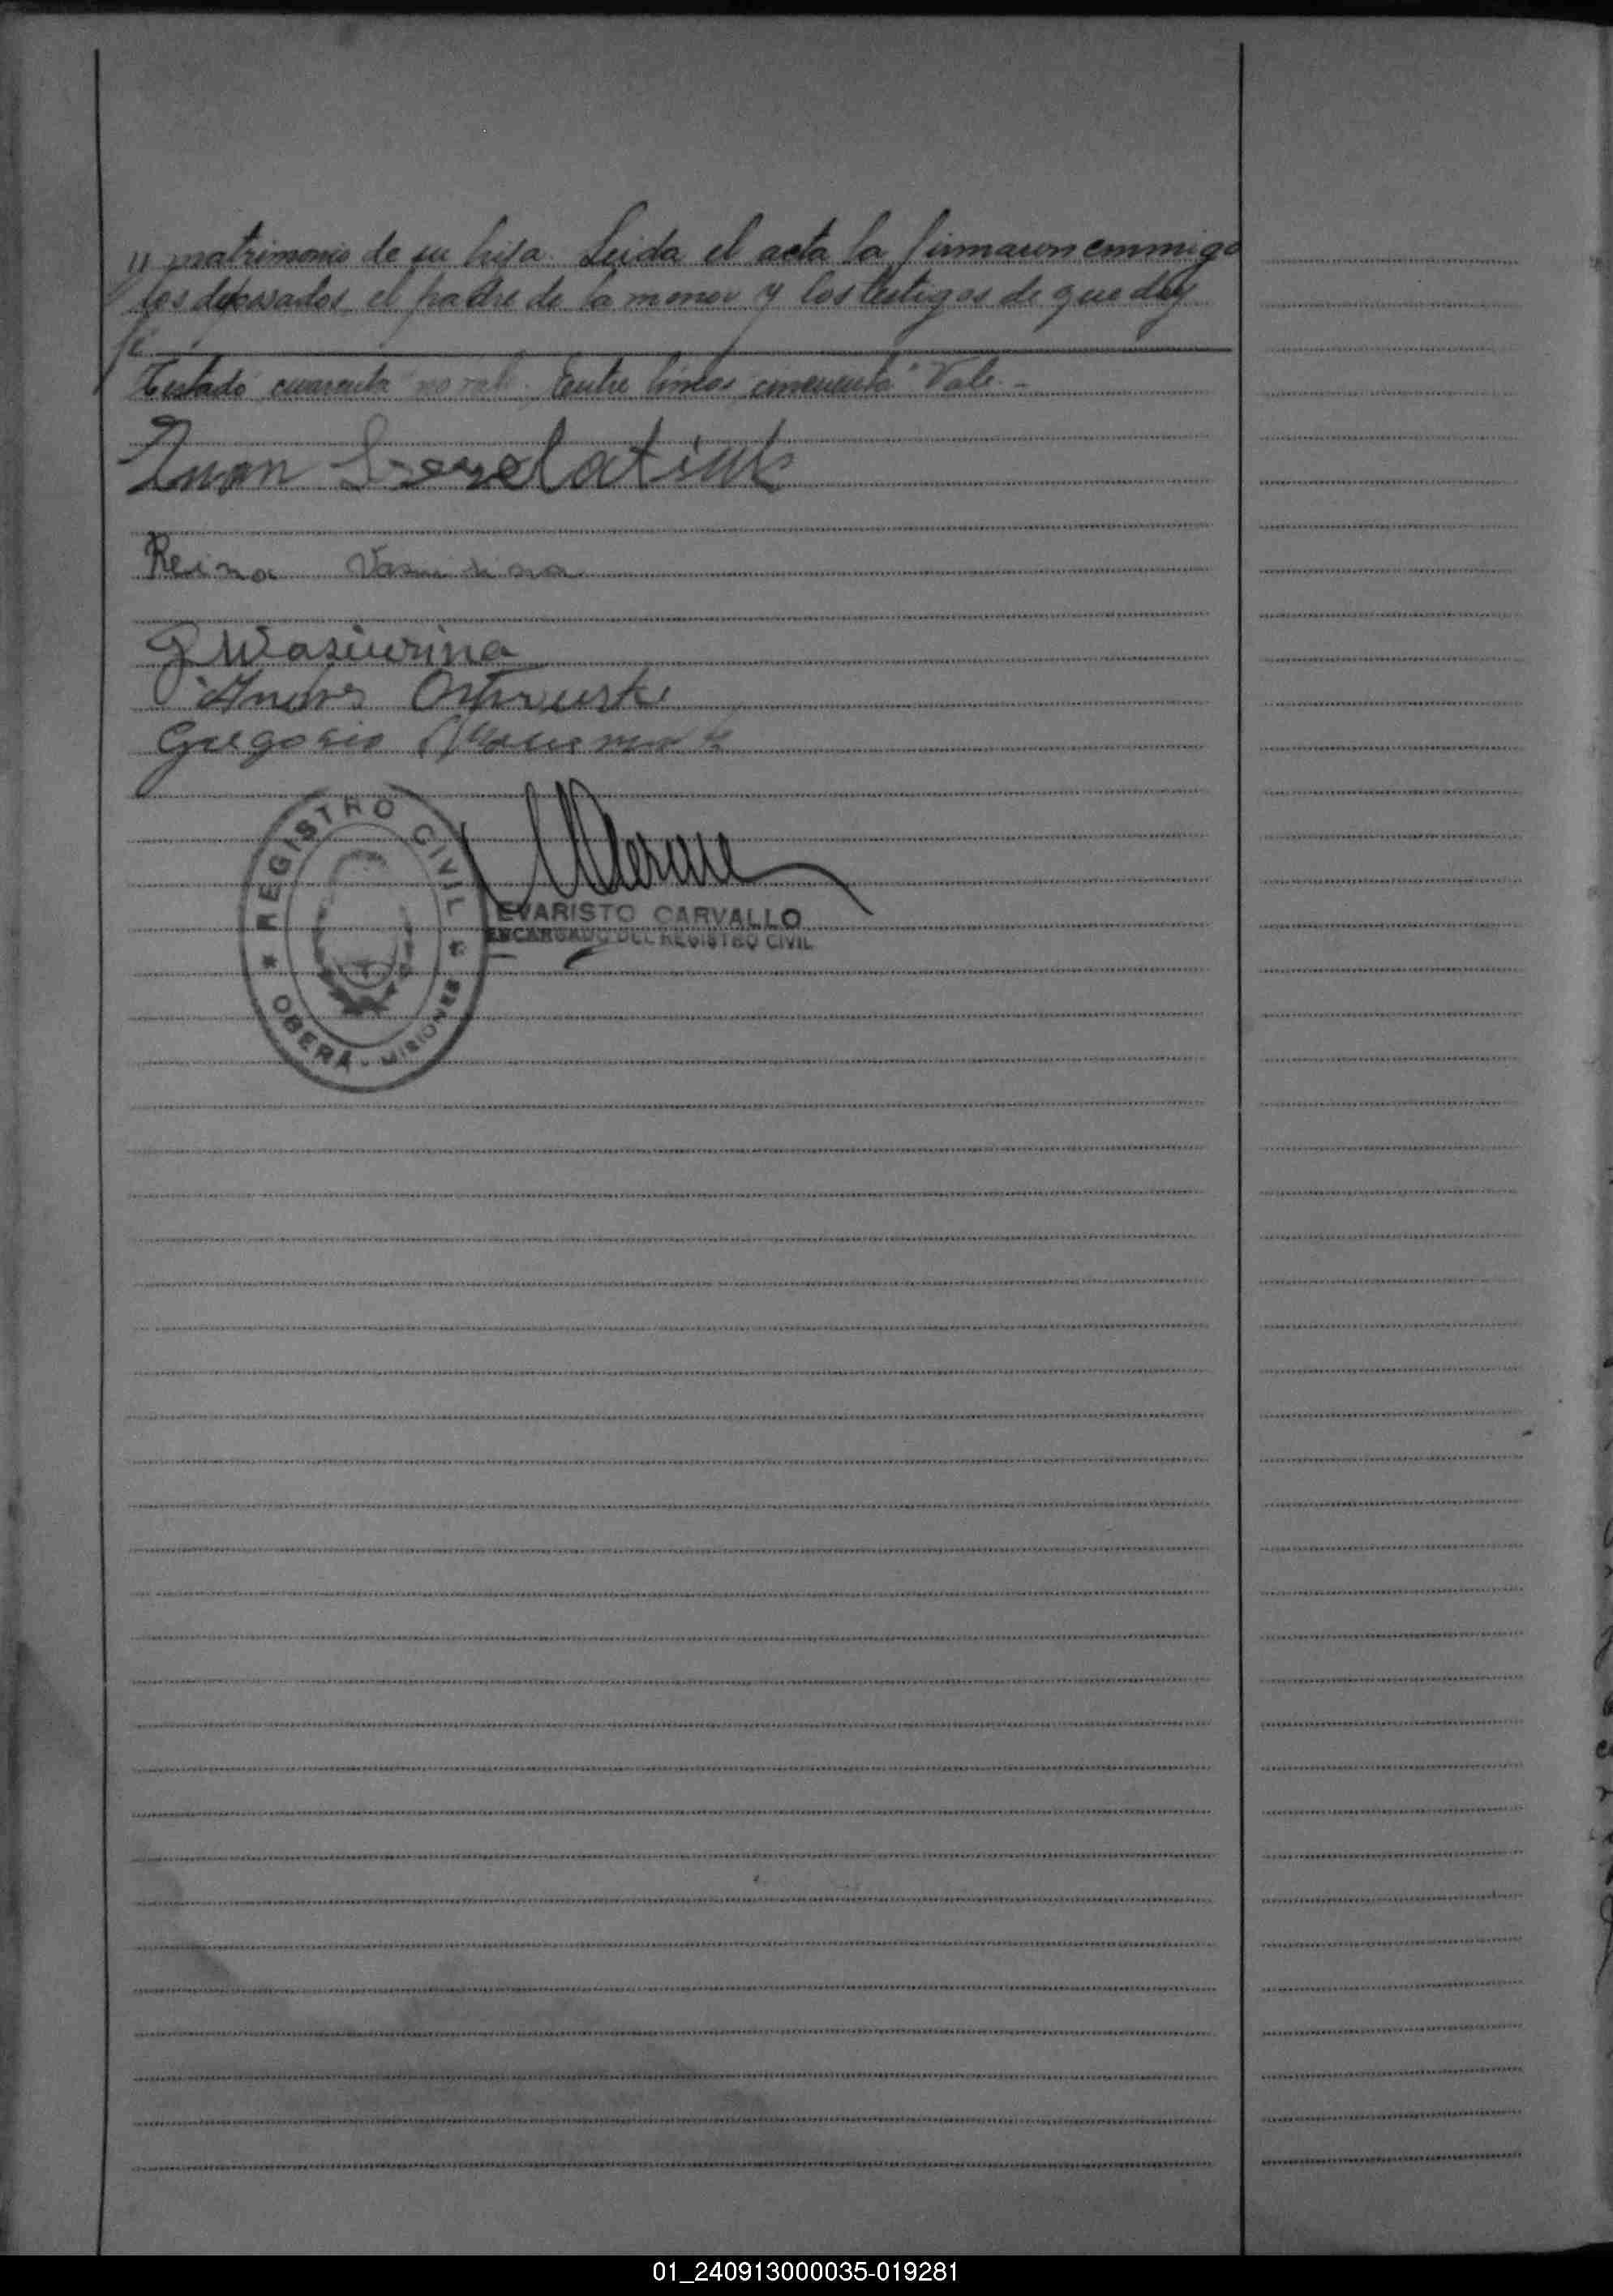 matrimonio de su hija. Leida el acta la firmaron conmigo
los desposados, el padre de la menor y los testigos de que doy
fé.
Testado "cuarenta" no vale. Entre lineas "cincuenta" Vale.-
Juan
Reina
Wasiurina
Andres
Gregorio
REGISTRO CIVIL
OBERÁ - MISIONES
EVARISTO CARVALLO
ENCARGADO DEL REGISTRO CIVIL
01_240913000035-019281